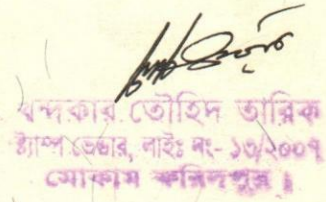 খন্দকার তৌহিদ তারিক
ষ্ট্যাম্প ভেন্ডার, লাইঃ নং- ১৩/২০০৭
মোকাম ফরিদপুর।